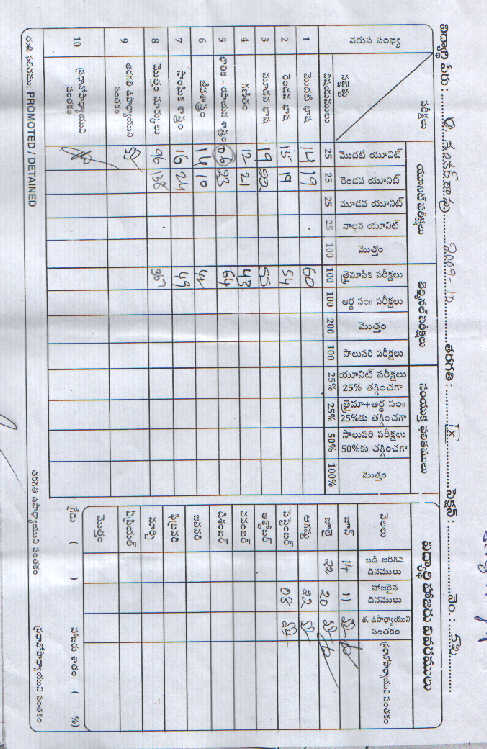 విద్యార్థి పేరు : 2009-10 తరగతి : IX సెక్షన్ : నెం :
వరుస సంఖ్య
పరీక్షలు
యూనిట్ పరీక్షలు
టెర్మినల్ పరీక్షలు
సంయుక్త ఫలితములు
మొదటి యూనిట్ 25
రెండవ యూనిట్ 25
మూడవ యూనిట్ 25
నాల్గవ యూనిట్ 25
మొత్తం 100
త్రైమాసిక పరీక్షలు 100
అర్ధ సం॥ పరీక్షలు 100
మొత్తం 200
సాలుసరి పరీక్షలు 100
యూనిట్ పరీక్షలు 25% తగ్గించగా 25%
త్రైమా+అర్ధ సం॥ 25%కు తగ్గించగా 25%
సాలుసరి పరీక్షలు 50%కు తగ్గించగా 50%
మొత్తం 100%
1 మొదటి భాష 14 19 60
2 రెండవ భాష 15 19 54
3 మూడవ భాష 19 55
4 గణితం 12 21 43
5 భౌతిక రసాయన శాస్త్రం 23 64
6 జీవశాస్త్రం 14 10 42
7 సాంఘిక శాస్త్రం 16 24 49
8 మొత్తం మార్కులు 96 138 367
9 తరగతి ఉపాధ్యాయుని సంతకం
10 ప్రధానోపాధ్యాయుని సంతకం
PROMOTED / DETAINED
విద్యార్థి హాజరు వివరములు
నెలలు
బడి జరిగిన దినములు
హాజరైన దినములు
త. ఉపాధ్యాయుని సంతకం
ప్రధానోపాధ్యాయుని సంతకం
జూన్ 14 11
జూలై 22 20
ఆగస్టు 22
సెప్టెంబర్ 08
అక్టోబర్
నవంబర్
డిశంబర్
జనవరి
ఫిబ్రవరి
మార్చి
ఏప్రియల్
మొత్తం
గ్రేడు ( ) హాజరు శాతం ( %)
తరగతి ఉపాధ్యాయుని సంతకం
ప్రధానోపాధ్యాయుని సంతకం